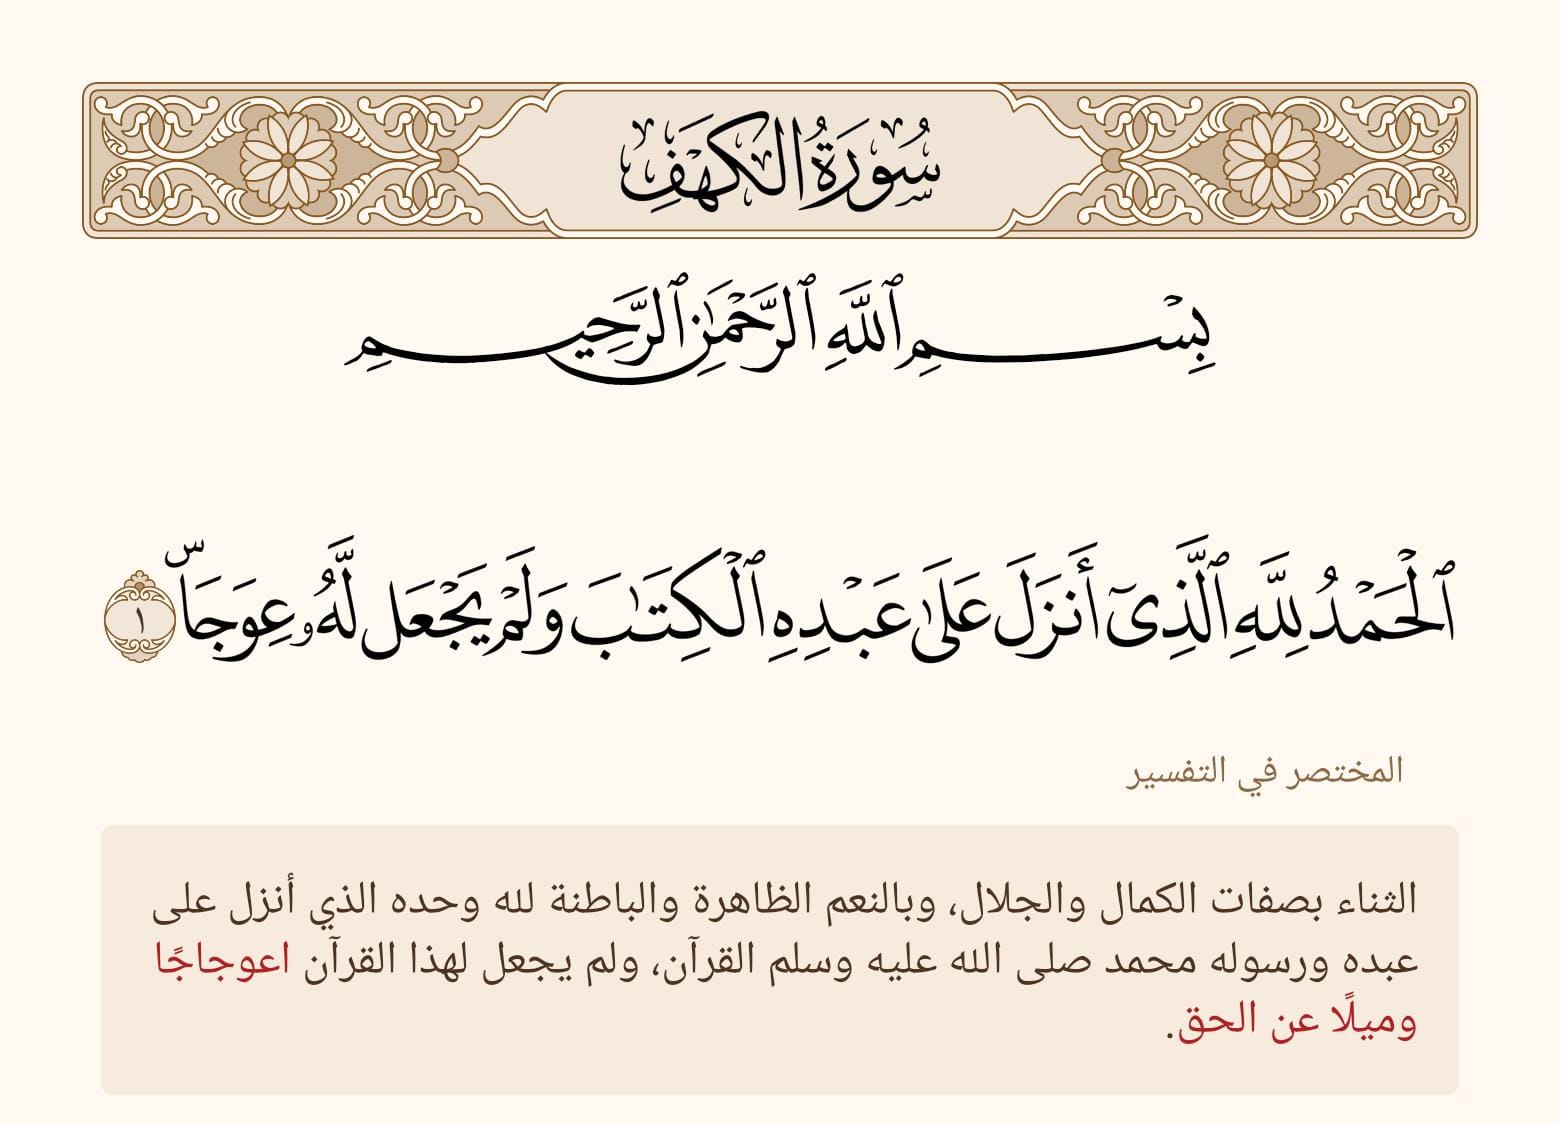 سُورَةُ الكَهْفِ
بِسْمِ ٱللَّهِ ٱلرَّحْمَٰنِ ٱلرَّحِيمِ
ٱلْحَمْدُ لِلَّهِ ٱلَّذِىٓ أَنزَلَ عَلَىٰ عَبْدِهِ ٱلْكِتَٰبَ وَلَمْ يَجْعَل لَّهُۥ عِوَجَاۜ ١
المختصر في التفسير
الثناء بصفات الكمال والجلال، وبالنعم الظاهرة والباطنة لله وحده الذي أنزل على
عبده ورسوله محمد صلى الله عليه وسلم القرآن، ولم يجعل لهذا القرآن اعوجاجًا
وميلًا عن الحق.